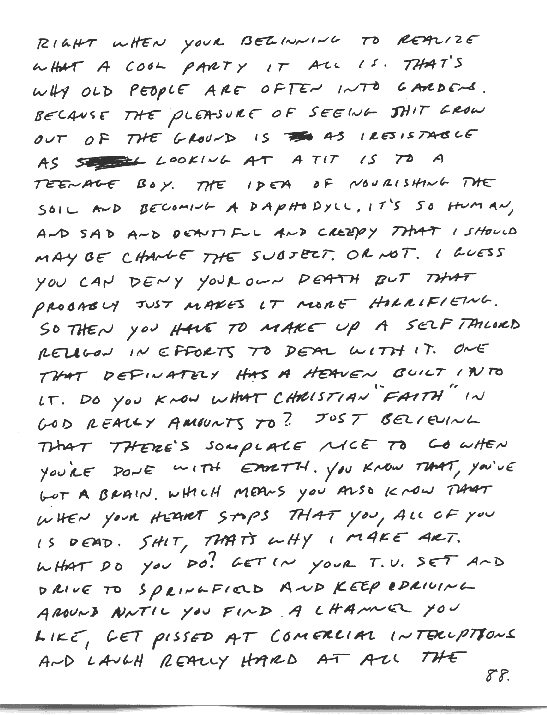 RIGHT WHEN YOUR BEGINNING TO REALIZE
WHAT A COOL PARTY IT ALL IS. THAT'S
WHY OLD PEOPLE ARE OFTEN INTO GARDENS.
BECAUSE THE PLEASURE OF SEEING SHIT GROW
OUT OF THE GROUND IS AS IRESISTABLE
AS LOOKING AT A TIT IS TO A
TEENAGE BOY. THE IDEA OF NOURISHING THE
SOIL AND BECOMING A DAPHODYLL, IT'S SO HUMAN,
AND SAD AND BEAUTIFUL AND CREEPY THAT I SHOULD
MAYBE CHANGE THE SUBJECT. OR NOT. I GUESS
YOU CAN DENY YOUR OWN DEATH BUT THAT
PROBABLY JUST MAKES IT MORE HORRIFIEING.
SO THEN YOU HAVE TO MAKE UP A SELF TAILORD
RELEGON IN EFFORTS TO DEAL WITH IT. ONE
THAT DEFINATELY HAS A HEAVEN BUILT INTO
IT. DO YOU KNOW WHAT CHRISTIAN "FAITH" IN
GOD REALLY AMOUNTS TO? JUST BELIEVING
THAT THERE'S SOMPLACE NICE TO GO WHEN
YOU'RE DONE WITH EARTH. YOU KNOW THAT, YOU'VE
GOT A BRAIN. WHICH MEANS YOU ALSO KNOW THAT
WHEN YOUR HEART STOPS THAT YOU, ALL OF YOU
IS DEAD. SHIT, THAT'S WHY I MAKE ART.
WHAT DO YOU DO? GET IN YOUR T.V. SET AND
DRIVE TO SPRINGFIELD AND KEEP DRIVING
AROUND UNTIL YOU FIND A CHANNEL YOU
LIKE, GET PISSED AT COMERCIAL INTERUPTIONS
AND LAUGH REALLY HARD AT ALL THE
88.